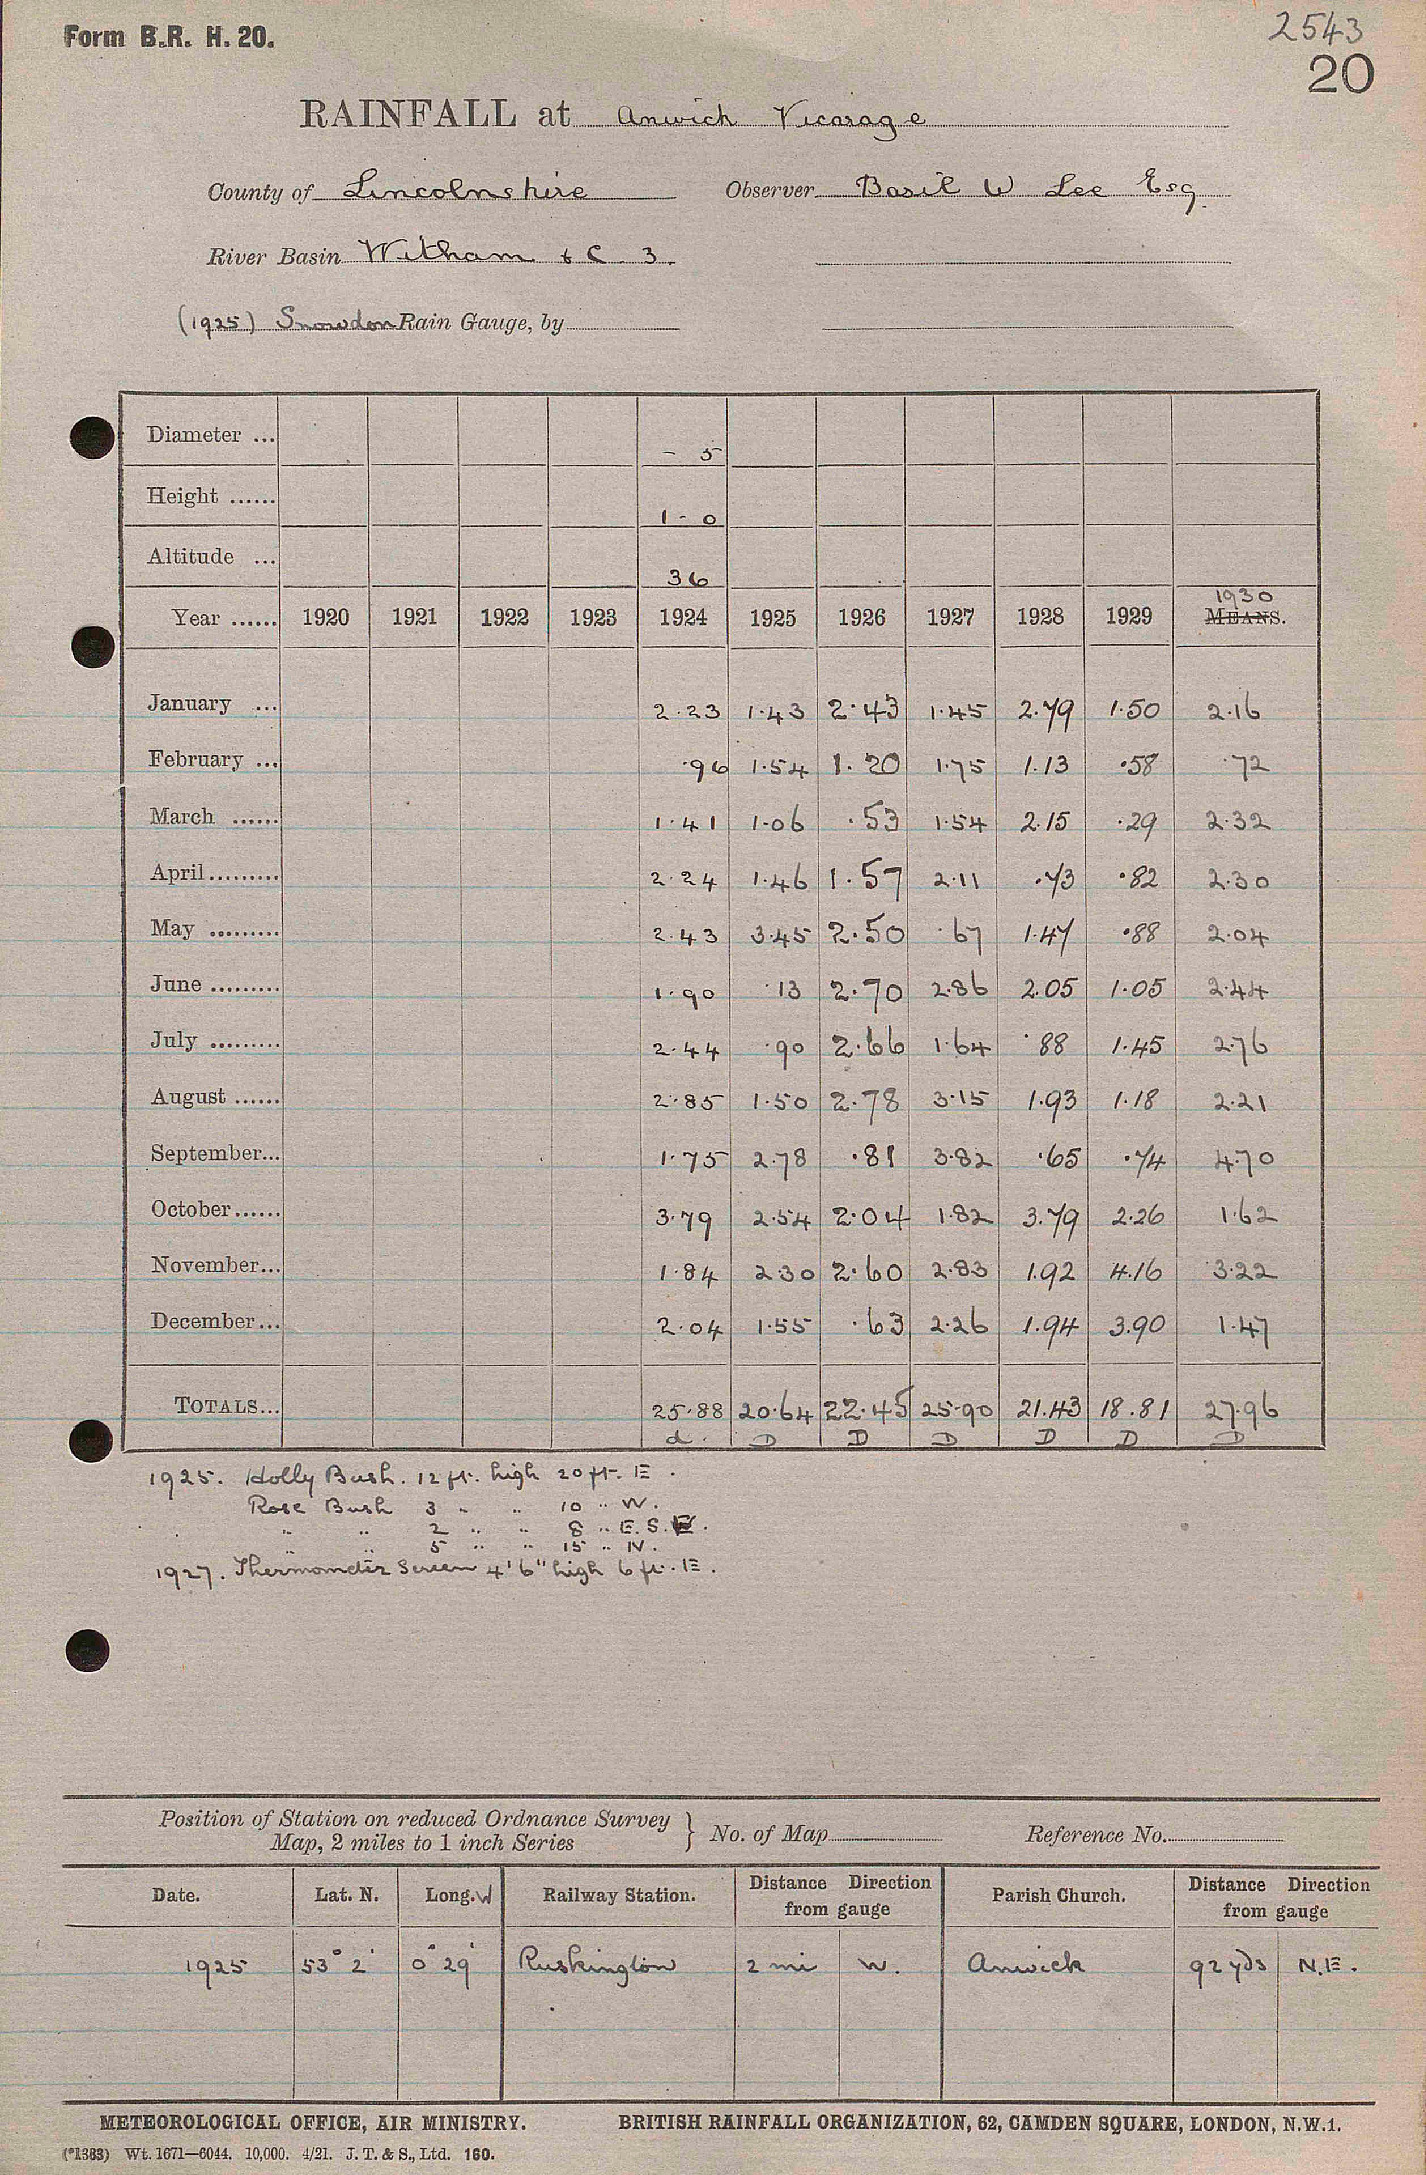 Form B.R. H. 20.
2543
20
RAINFALL at Anwick Vicarage
County of Lincolnshire Observer Basil W Lee Esq.
River Basin Witham & C 3.
(1925) Snowdon Rain Gauge, by
Diameter ... - 5
Height ...... 1 - 0
Altitude ... 36
1930
Year ...... 1920 1921 1922 1923 1924 1925 1926 1927 1928 1929 MEANS.
January ... 2.23 1.43 2.43 1.45 2.79 1.50 2.16
February ... .96 1.54 1.20 1.75 1.13 .58 .72
March ...... 1.41 1.06 .53 1.54 2.15 .29 2.32
April ......... 2.24 1.46 1.57 2.11 .73 .82 2.30
May ......... 2.43 3.45 2.50 .67 1.47 .88 2.04
June ......... 1.90 .13 2.70 2.86 2.05 1.05 2.44
July ......... 2.44 .90 2.66 1.64 .88 1.45 2.76
August ...... 2.85 1.50 2.78 3.15 1.93 1.18 2.21
September... 1.75 2.78 .81 3.82 .65 .74 4.70
October ...... 3.79 2.54 2.04 1.82 3.79 2.26 1.62
November... 1.84 2.30 2.60 2.83 1.92 4.16 3.22
December... 2.04 1.55 .63 2.26 1.94 3.90 1.47
TOTALS... 25.88 20.64 22.45 25.90 21.43 18.81 27.96
d. D D D D D D
1925. Holly Bush. 12 ft. high 20 ft. E.
Rose Bush 3 " " 10 " W.
" " 2 " " 8 " E.S.E.
" " 5 " " 15 " N.
1927. Thermometer Screen 4' 6" high 6 ft. E.
Position of Station on reduced Ordnance Survey
Map, 2 miles to 1 inch Series } No. of Map Reference No.
Date. Lat. N. Long. W Railway Station. Distance Direction from gauge Parish Church. Distance Direction from gauge
1925 53° 2' 0° 29' Ruskington 2 mi W. Anwick 92 yds N.E.
METEOROLOGICAL OFFICE, AIR MINISTRY. BRITISH RAINFALL ORGANIZATION, 62, CAMDEN SQUARE, LONDON, N.W.1.
(*1383) Wt. 1671—6044. 10,000. 4/21. J. T. & S., Ltd. 160.